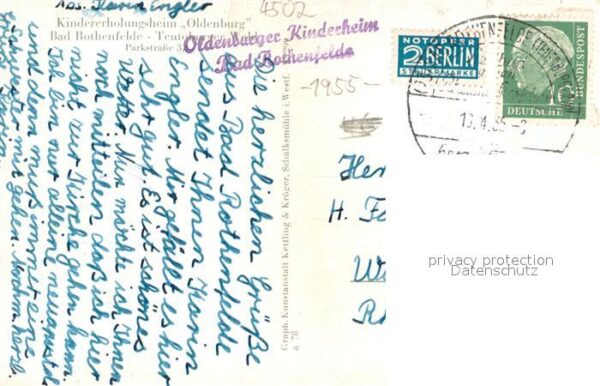 Abs. Karin Engler
Kindererholungsheim „Oldenburg"
Bad Rothenfelde - Teutoburger Wald
Parkstraße
4502
Oldenburger Kinderheim
Bad Rothenfelde
-1955-
NOTOPFER
2 BERLIN
STEUERMARKE
DEUTSCHE
BUNDESPOST
10
13.4.55-8
Die herzlichen Grüße
aus Bad Rothenfelde
sendet Ihnen Karin
Engler. Mir gefällt es hier
sehr gut. Es ist schönes
Wetter. Nun möchte ich Ihnen
noch mitteilen, das ich hier
nicht zur Kirche gehen kann.
nur allein
und dann muß immer eine
gehen.
Graph. Kunstanstalt Kettling & Krüger, Schalksmühle i. Westf.
a 78
Her
H. Fe
W
R
privacy protection
Datenschutz